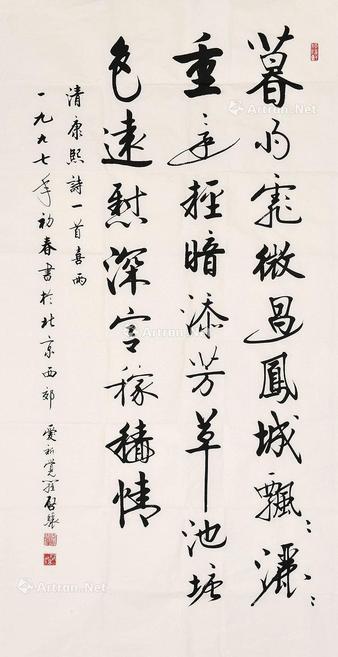 暮雨霏微過鳳城飄〻灑〻
重還輕暗添芳草池塘
色遠慰深宮稼穡情
清康熙詩一首喜雨
一九九七年初春書於北京西郊 愛新覺羅啟驤
Artron.Net